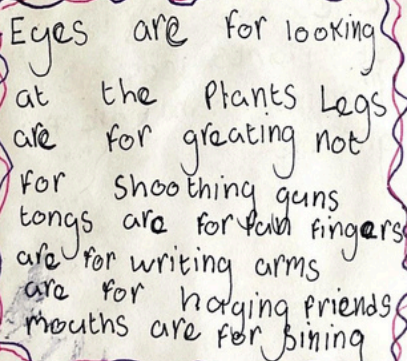 Eyes are for looking
at the Plants Legs
are for greating not
for shoothing guns
tongs are for fingers
are for writing arms
are for hoging friends
mouths are for sining